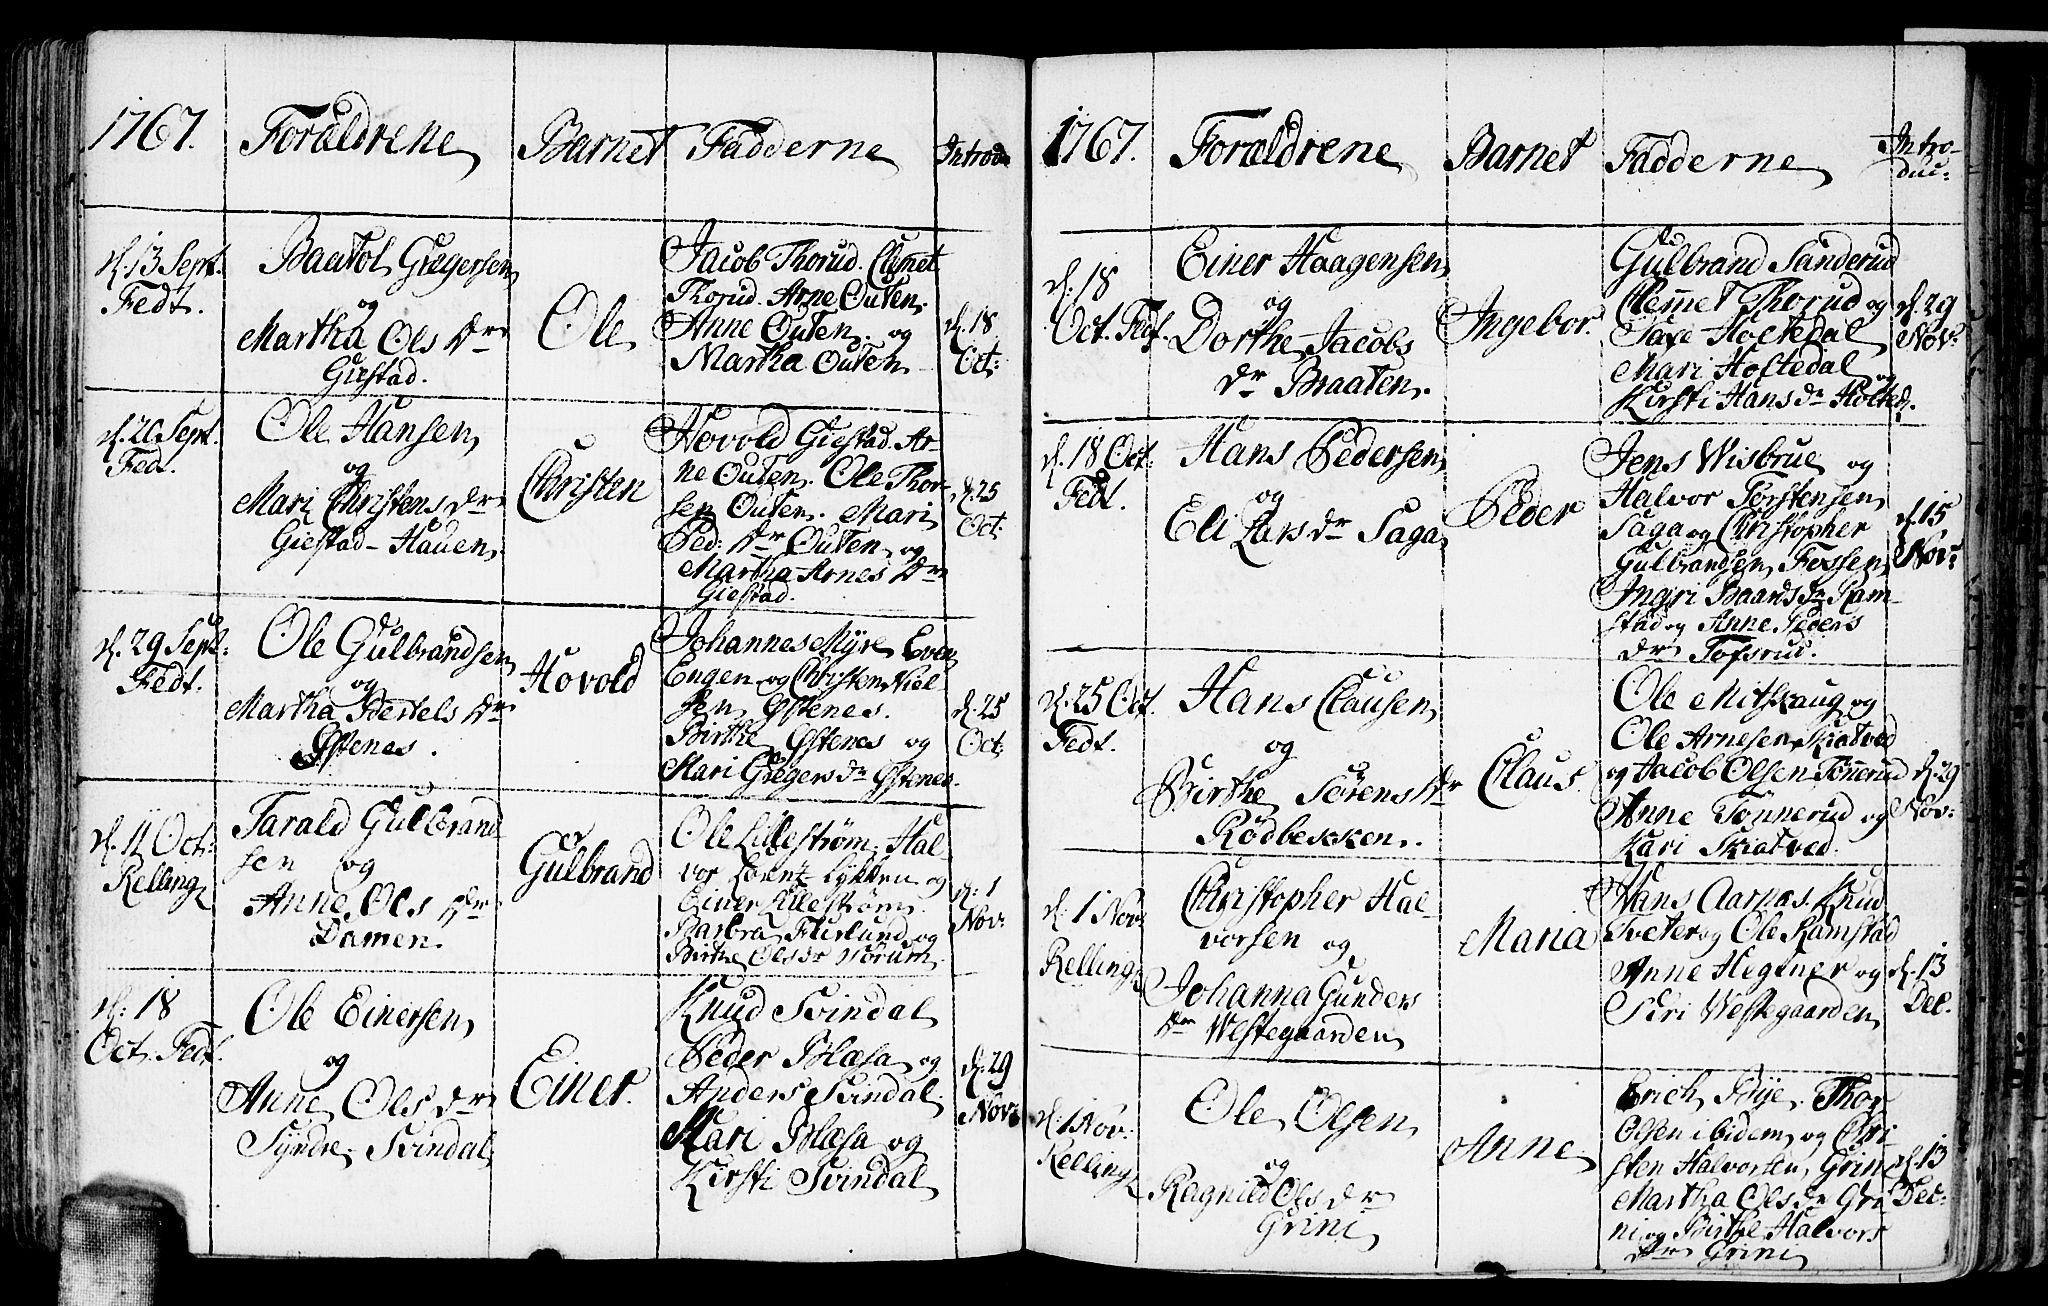 1767. Forældrene Barnet Fadderne Introd:
d. 13 Sept. Fedt.
Baatol Gregersen
og
Martha Ols Dr
Giestad.
Ole
Jacob Thorud. Clemet
Thorud. Arne Outen.
Anne Outen og
Martha Outen
d. 18
Oct:
d. 20 Sept.
Fedt.
Ole Hansen
og
Mari Christens dr
Giestad-Hauen
Christen
Hovold Giestad. Ar-
ne Outen. Ole Thor-
sen Outen. Mari
Ped: Dr Outen og
Martha Arnes Dr
Giestad.
d. 25
Oct:
d. 29 Sept:
Fedt.
Ole Gulbrandsen
og
Martha Bertels Dr
Østenes.
Hovold
Johannes Myre Even
Engen og Christen Niel-
sen Østenes.
Birthe Østenes og
Mari Gregers dr Østenes.
d. 25
Oct:
d. 11 Oct:
Kelling
Tarald Gulbrand
sen og
Anne Ols Dr
Damen.
Gulbrand
Ole Lillestrøm. Hal-
vor Lykken og
Einer Lillestrøm
Barbra og
Birthe Ols dr Norum
d: 1
Nov:
d: 18
Oct. Fedt.
Ole Einersen
og
Anne Ols dr
Syndre Svindal
Einer.
Knud Svindal
Peder Blæsa og
Anders Svindal.
Kari Blæsa og
Kirsti Svindal
d. 29
Nov:
1767. Forældrene Barnet Fadderne Intro-
duc:
d. 18
Oct. Fedt.
Einer Haagensen
og
Dorthe Jacobs
dr Braaten.
Ingebor.
Gulbrand Sanderud
Clemmet Thorud og
Taxe Holtedal
Mari Holtedal og
Kirsti Hans dr Holted.
d. 29
Nov:
d. 18 Oct:
Fedt.
Hans Pedersen
og
Eli Lars dr Saga
Peder
Jens Wisbrue og
Halvor Torstensen
Saga og Christopher
Gulbrandsen Fossen
Ingri Baards dr Ram-
stad og Anne Peders
dr Tofsrud.
d. 15
Nov:
d. 25 Oct.
Fedt.
Hans Clausen
og
Birthe Sørens Dr
Rødbekken.
Claus.
Ole Mitskaug og
Ole Arnesen Skiatved
og Jacob Olsen Tønnerud
Anne Tønnerud og
Kari Skiatved.
d. 29
Nov:
d. 1 Nov:
Relling:
Christopher Hal-
vorsen og
Johanna Gunders
Dr Westegaarden
Maria
Hans Aarnas. Knud
Tveter og Ole Ramstad
Anne Hegsner og
Siri Westegaarden
d. 13
Dec.
d. 1 Nov:
Kelling
Ole Olsen
og
Ragnild Ols dr
Grini
Anne
Erich Bye. Thor
Olsen ibidem og Chri-
sten Halvorsen Grini
Martha Ols dr Gri
ni og Birthe Halvors
dr Grini
d. 13
Dec: